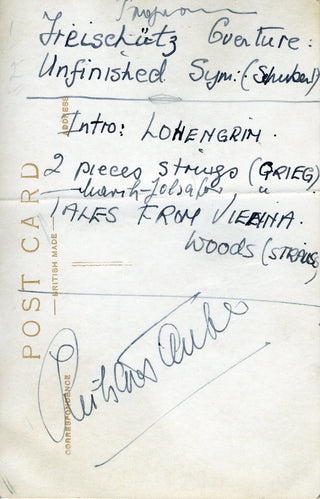 Program
Freischütz Overture:
Unfinished Sym: (Schubert)
Intro: LOHENGRIN.
2 pieces strings (GRIEG)
March-Jolsafar "
TALES FROM VIENNA
WOODS (STRAUS
POST CARD
BRITISH MADE
ADDRESS
CORRESPONDENCE